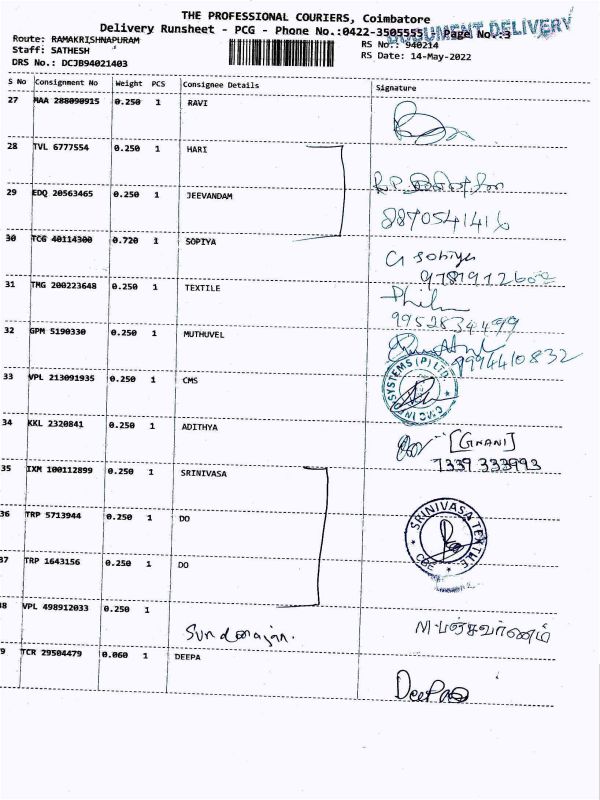 THE PROFESSIONAL COURIERS, Coimbatore
Delivery Runsheet - PCG - Phone No.:0422-3505555 Page No.:3
DOCUMENT DELIVERY
Route: RAMAKRISHNAPURAM
RS No.: 940214
Staff: SATHESH
RS Date: 14-May-2022
DRS No.: DCJB94021403
S No Consignment No Weight PCS Consignee Details Signature
27 MAA 288090915 0.250 1 RAVI
28 TVL 6777554 0.250 1 HARI
29 EDQ 20563465 0.250 1 JEEVANDAM
8870541416
30 TCG 40114300 0.720 1 SOPIYA
G sobiya
9781912602
31 TMG 200223648 0.250 1 TEXTILE
9952834499
32 GPM 5190330 0.250 1 MUTHUVEL
9994410832
33 VPL 213091935 0.250 1 CMS
SYSTEMS (P) LTD
34 KKL 2320841 0.250 1 ADITHYA
[GNANI]
7339 333993
35 IXM 100112899 0.250 1 SRINIVASA
SRINIVASA TEXTILE
CBE
36 TRP 5713944 0.250 1 DO
37 TRP 1643156 0.250 1 DO
38 VPL 498912033 0.250 1
Sundarrajan.
M பஞ்சவர்ணம்
39 TCR 29504479 0.060 1 DEEPA
Deepa